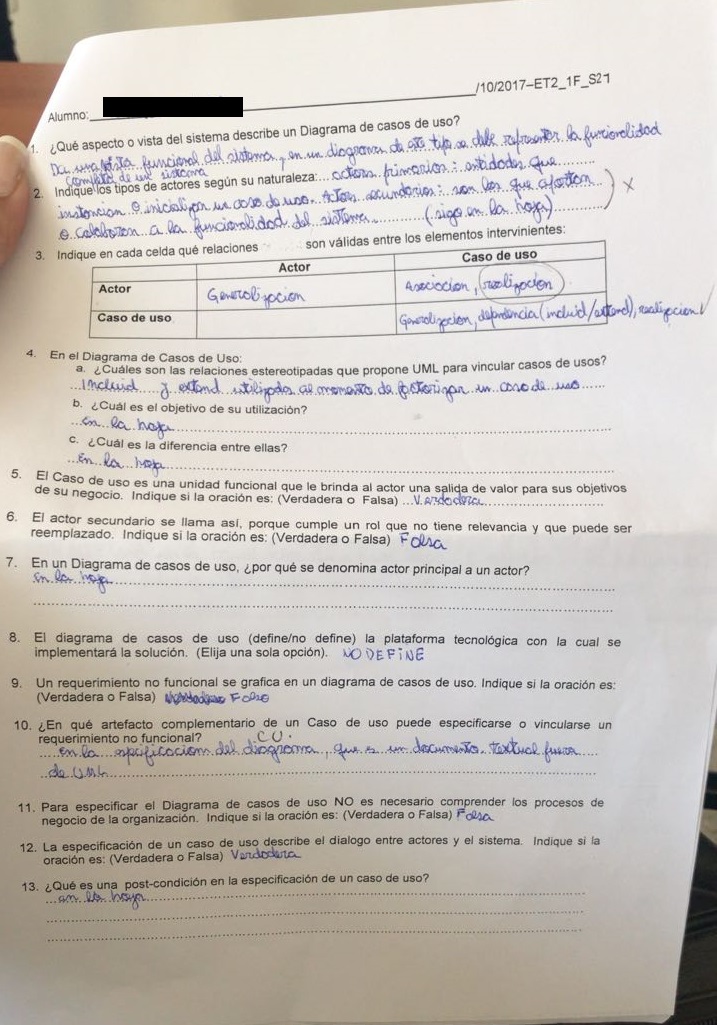 /10/2017–ET2_1F_S21
Alumno:
1. ¿Qué aspecto o vista del sistema describe un Diagrama de casos de uso?
Da una vista funcional del sistema, en un diagrama de este tipo se debe representar la funcionalidad
completa de un sistema
2. Indique los tipos de actores según su naturaleza: actores primarios: entidades que
instancian o inicializan un caso de uso. Actores secundarios: son los que aportan
o colaboran a la funcionalidad del sistema (sigo en la hoja) X
3. Indique en cada celda qué relaciones son válidas entre los elementos intervinientes:
Actor Caso de uso
Actor Generalizacion Asociacion, realizacion
Caso de uso Generalizacion, dependencia (includ/extend), realizacion
4. En el Diagrama de Casos de Uso:
a. ¿Cuáles son las relaciones estereotipadas que propone UML para vincular casos de usos?
Includ y extend utilizados al momento de factorizar un caso de uso
b. ¿Cuál es el objetivo de su utilización?
en la hoja
c. ¿Cuál es la diferencia entre ellas?
En la hoja
5. El Caso de uso es una unidad funcional que le brinda al actor una salida de valor para sus objetivos
de su negocio. Indique si la oración es: (Verdadera o Falsa) Verdadera
6. El actor secundario se llama así, porque cumple un rol que no tiene relevancia y que puede ser
reemplazado. Indique si la oración es: (Verdadera o Falsa) Falsa
7. En un Diagrama de casos de uso, ¿por qué se denomina actor principal a un actor?
en la hoja
8. El diagrama de casos de uso (define/no define) la plataforma tecnológica con la cual se
implementará la solución. (Elija una sola opción). NO DEFINE
9. Un requerimiento no funcional se grafica en un diagrama de casos de uso. Indique si la oración es:
(Verdadera o Falsa) Falso
10. ¿En qué artefacto complementario de un Caso de uso puede especificarse o vincularse un
requerimiento no funcional? CU.
en la especificaciom del diagrama, que es un documento textual fuera
de UML
11. Para especificar el Diagrama de casos de uso NO es necesario comprender los procesos de
negocio de la organización. Indique si la oración es: (Verdadera o Falsa) Falsa
12. La especificación de un caso de uso describe el dialogo entre actores y el sistema. Indique si la
oración es: (Verdadera o Falsa) Verdadera
13. ¿Qué es una post-condición en la especificación de un caso de uso?
en la hoja